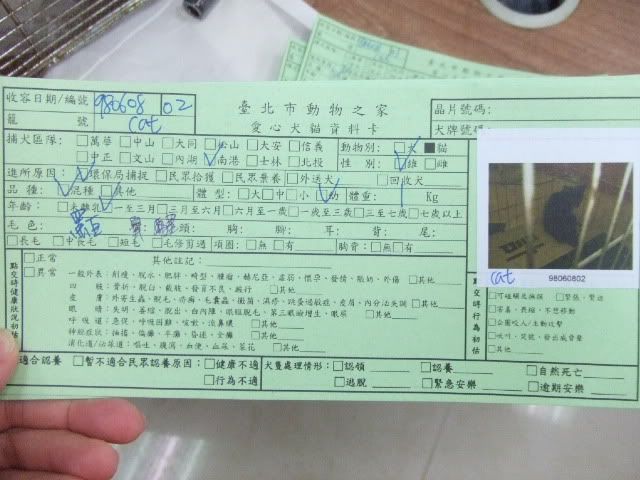 收容日期/編號 980608 02
臺北市動物之家
晶片號碼:
籠 號 cat
愛心犬貓資料卡
犬牌號碼:
捕犬區隊: □萬華 □中山 □大同 □松山 □大安 □信義
動物別: □犬 ■貓
□中正 □文山 □內湖 □南港 □士林 □北投
性 別: □雄 □雌
進所原因: □環保局捕捉 □民眾拾獲 □民眾棄養 □外送犬 □回收犬
品 種: □混種 □其他
體 型: □大□中□小□幼 體重: Kg
年齡: □未離乳□一至三月□三至六月□六月至一歲 □一歲至三歲 □三至七歲 □七歲以上
毛 色: 頭: 胸: 腳: 耳: 背: 尾:
□長毛 □中長毛 □短毛 □毛修剪過 項圈: □無 □有 胸背: □無□有
點交時健康狀況初估
□正常 其他註記:
□異常 一般外表: 削瘦、脫水、肥胖、畸型、腫瘤、赫尼亞、虛弱、懷孕、發情、脹奶、外傷 □其他
四 肢: 骨折、脫臼、截肢、發育不良、跛行 □其他
皮 膚: 外寄生蟲、脫毛、疥癬、毛囊蟲、黴菌、濕疹、跳蚤過敏症、皮屑、內分泌失調 □其他
眼 睛: 失明、萎縮、脫出、白內障、眼瞼脫毛、第三眼瞼增生、眼屎 □其他
呼 吸 道: 急促、呼吸困難、咳嗽、流鼻膿 □其他
神經症狀: 抽搐、偏癱、平躺、昏迷、全癱 □其他
消化道/泌尿道: 嘔吐、腹瀉、血便、血尿、尿花 □其他
cat 98060802
點交時行為初估
□可碰觸與撫摸 □緊張、緊迫
□害羞、畏縮、不想移動
□企圖咬人/主動攻擊
□吠叫、哭號、發出威脅聲
□其他
適合認養 □暫不適合民眾認養原因: □健康不適
□行為不適
犬隻處理情形: □認領 □認養 □自然死亡
□逃脫 □緊急安樂 □逾期安樂